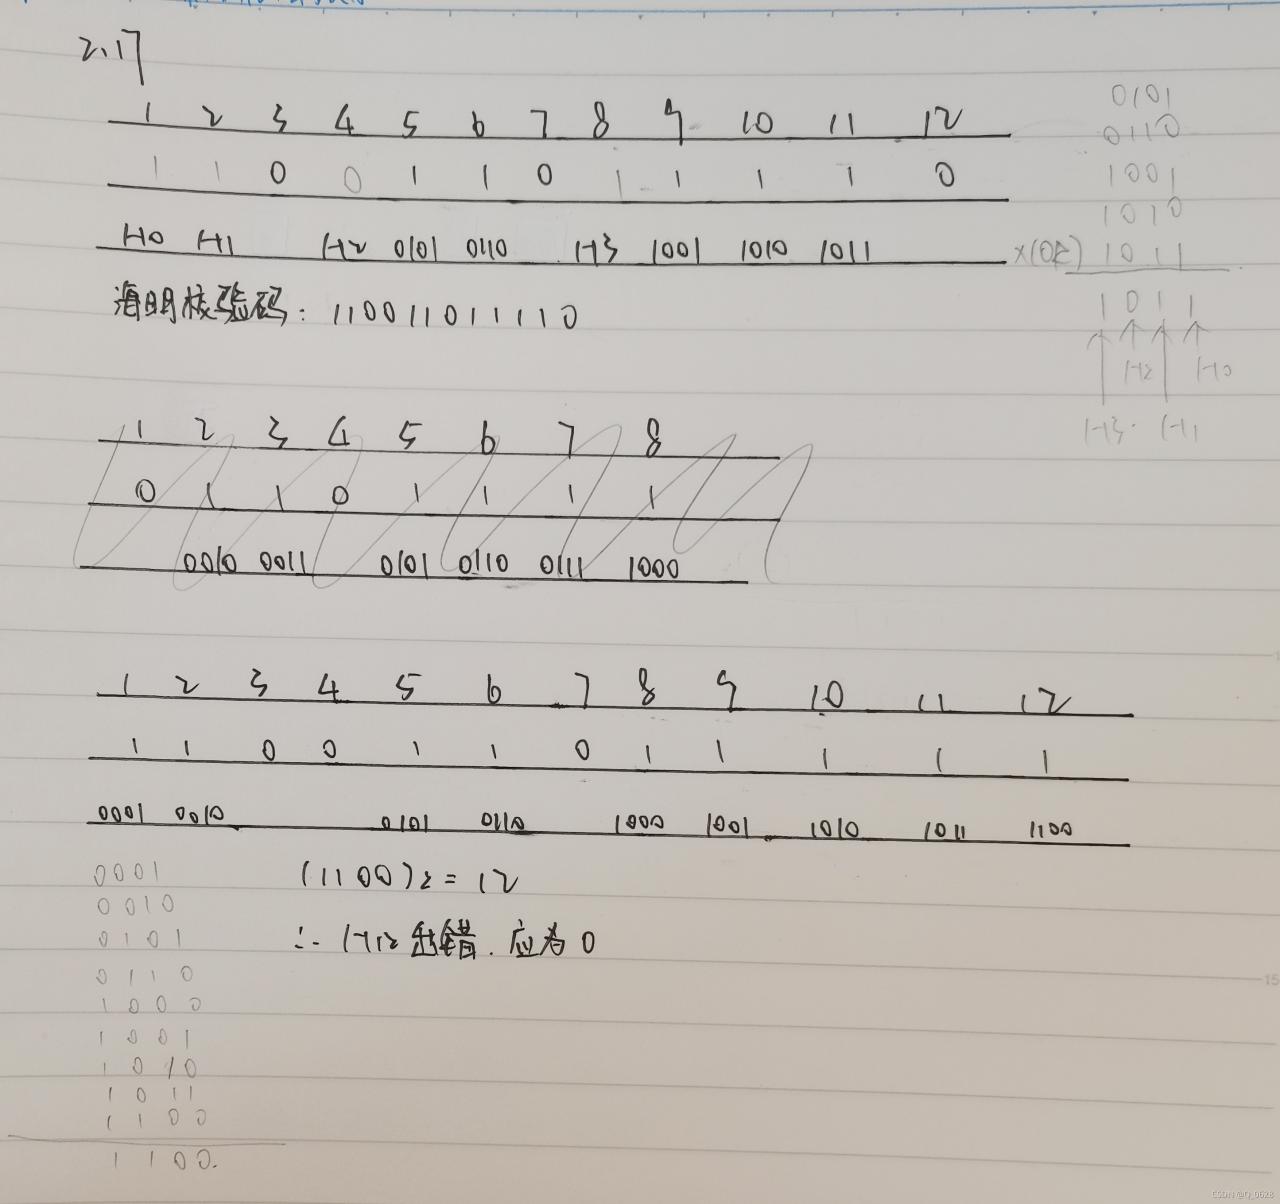 2.17
1 2 3 4 5 6 7 8 9 10 11 12
1 1 0 0 1 1 0 1 1 1 1 0
H0 H1 H2 0101 0110 H3 1001 1010 1011
海明核验码: 110011011110
0101
0110
1001
1010
x(OR) 1011
1 0 1 1
H2 H0
H3 H1
1 2 3 4 5 6 7 8
0 1 1 0 1 1 1 1
0010 0011 0101 0110 0111 1000
1 2 3 4 5 6 7 8 9 10 11 12
1 1 0 0 1 1 0 1 1 1 1 1
0001 0010 0101 0110 1000 1001 1010 1011 1100
0001
0010
0101
0110
1000
1001
1010
1011
1100
1100.
(1100)2 = 12
∴ H12 出错. 应为 0
15
CSDN @Q_0628